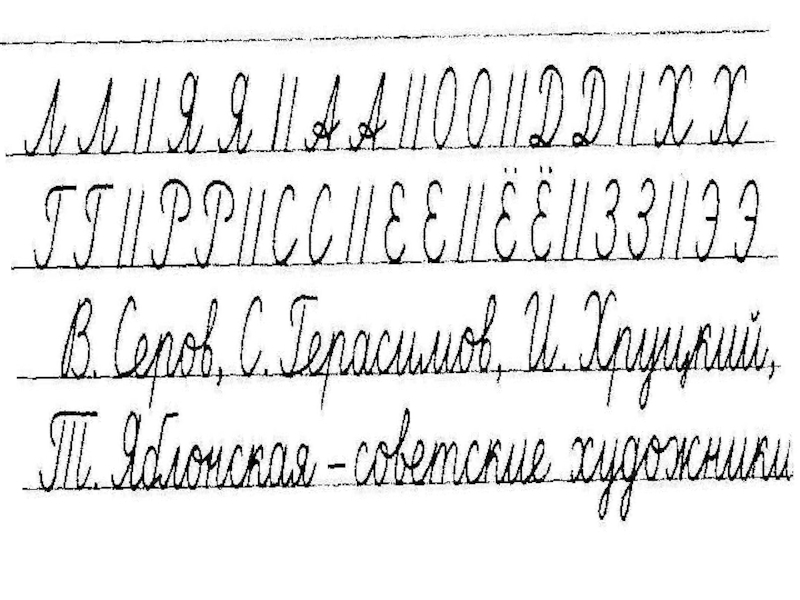 Л Л // Я Я // А А // О О // Д Д // Х Х
Г Г // Р Р // С С // Е Е // Ё Ё // З З // Э Э
В. Серов, С. Герасимов, И. Хруцкий,
Т. Яблонская – советские художники